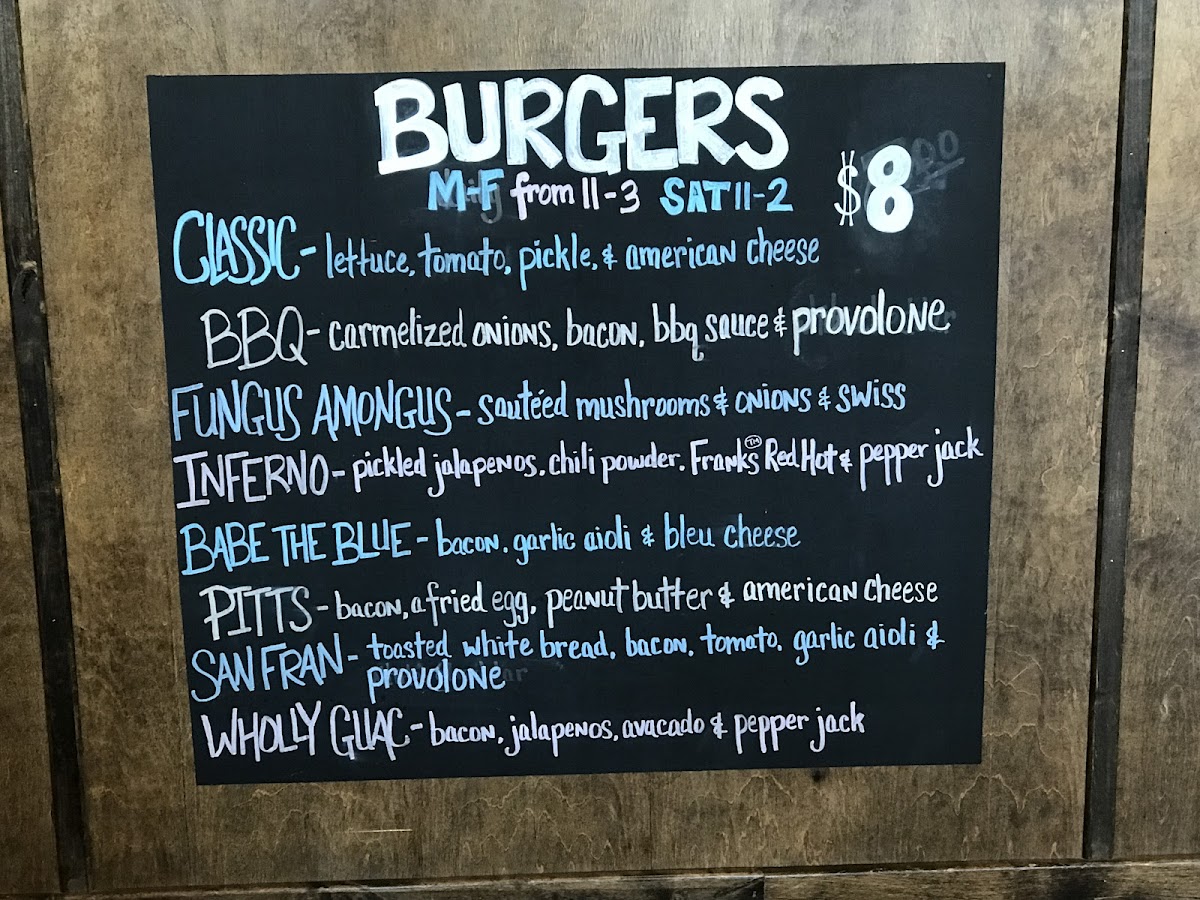 BURGERS
M-F from 11-3 SAT 11-2 $8
CLASSIC - lettuce, tomato, pickle, & american cheese
BBQ - carmelized onions, bacon, bbq sauce & provolone
FUNGUS AMONGUS - sauteéd mushrooms & onions & swiss
INFERNO - pickled jalapenos, chili powder, Frank's TM Red Hot & pepper jack
BABE THE BLUE - bacon, garlic aioli & bleu cheese
PITTS - bacon, a fried egg, peanut butter & american cheese
SAN FRAN - toasted white bread, bacon, tomato, garlic aioli &
provolone
WHOLLY GUAC - bacon, jalapenos, avacado & pepper jack